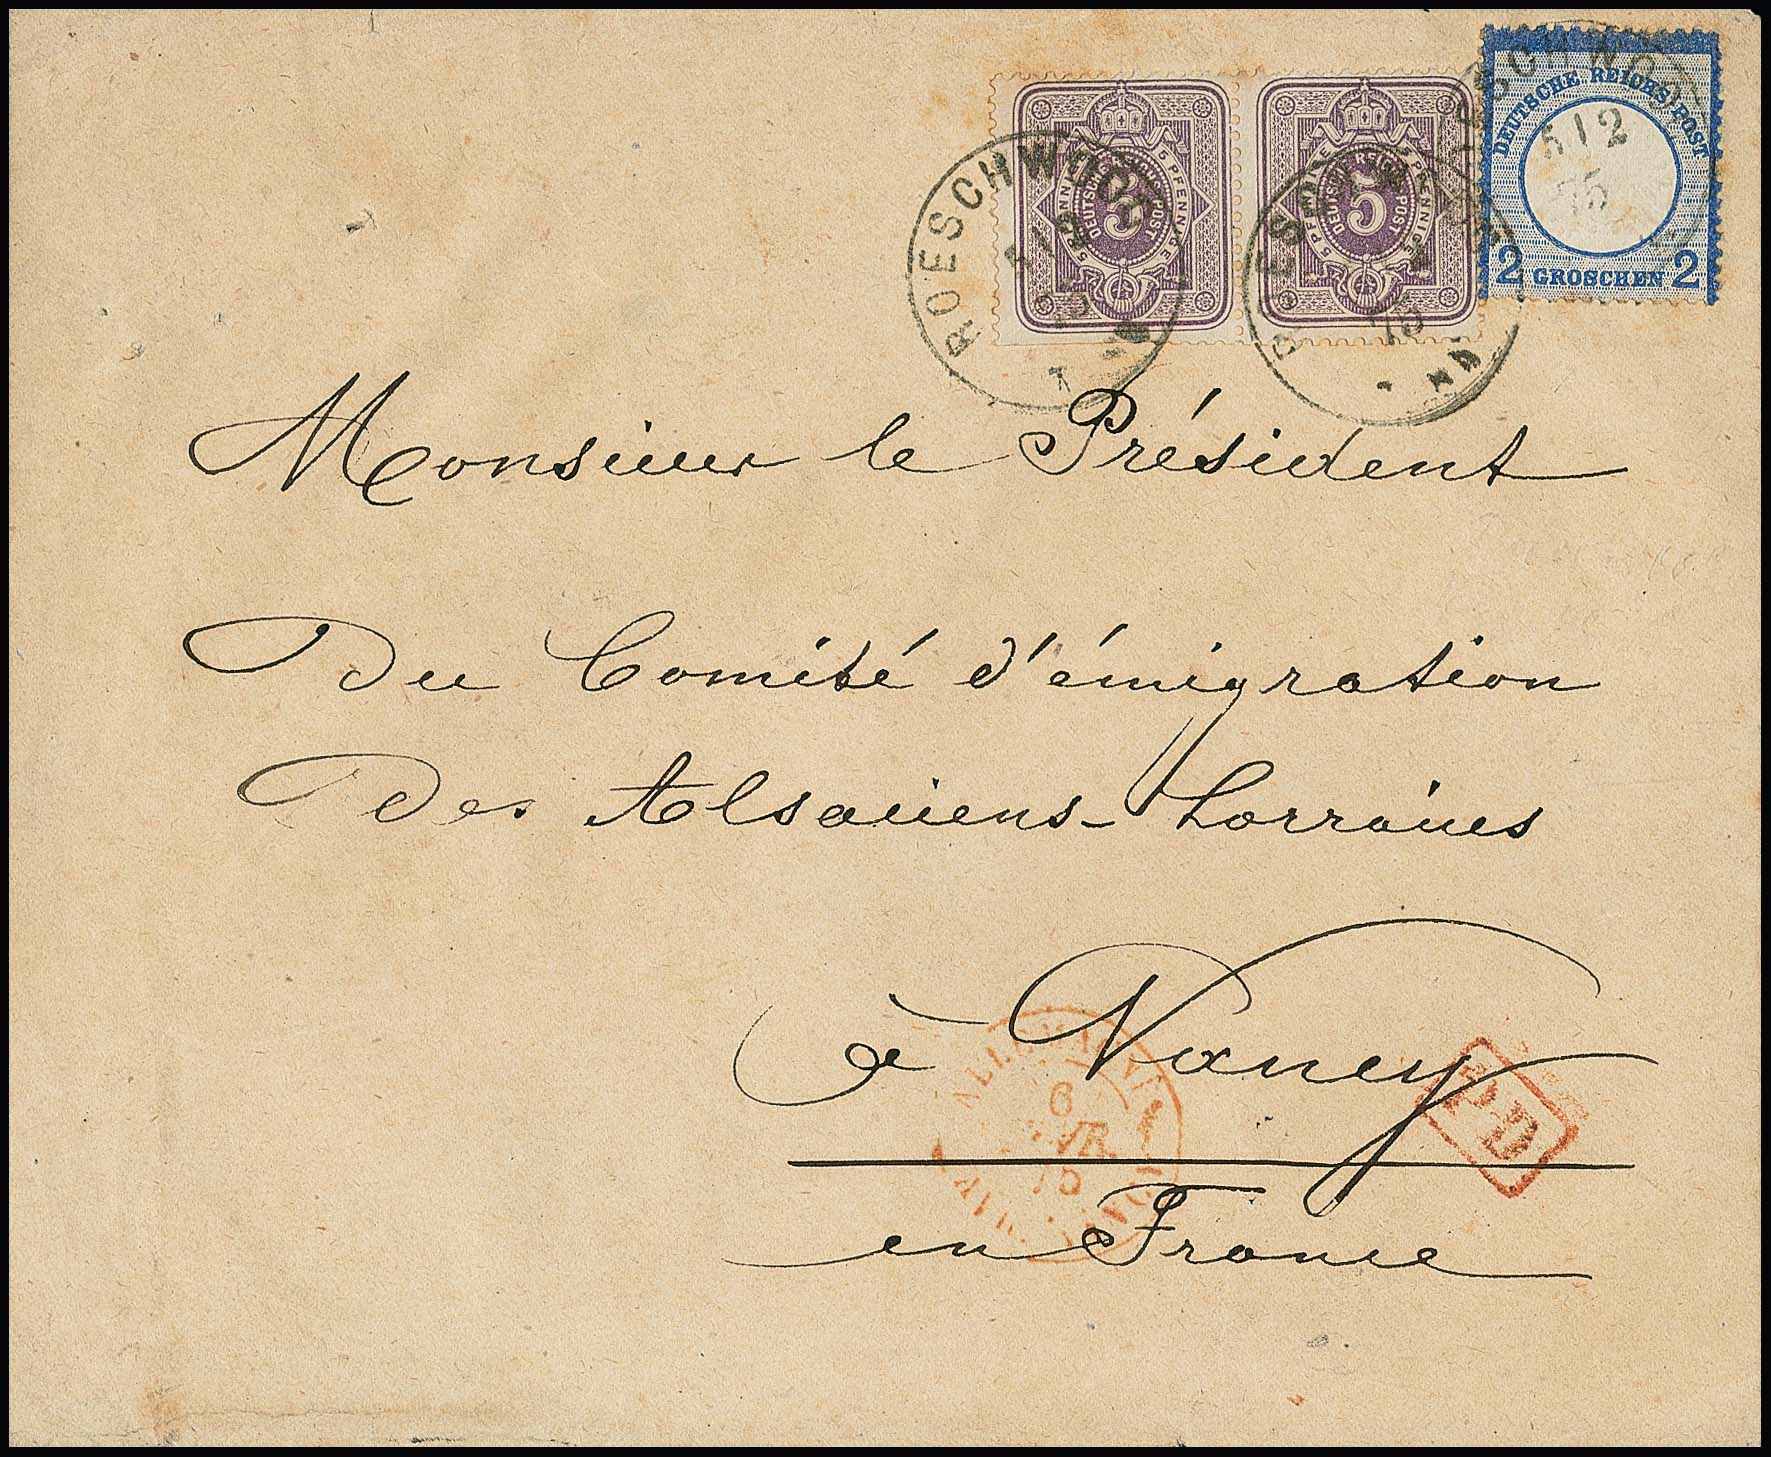 DEUTSCHE REICHS-POST
2 GROSCHEN 2
5 PFENNIGE 5 PFENNIGE
DEUTSCHE REICHS-POST
5
5 PFENNIGE 5 PFENNIGE
DEUTSCHE REICHS-POST
5
ROESCHWOOG
5 12
75
Monsieur le Président
Du Comité d'émigration
Des Alsaciens-Lorraines
à Nancy
en France
ALLEMAGNE
6
75
P.D